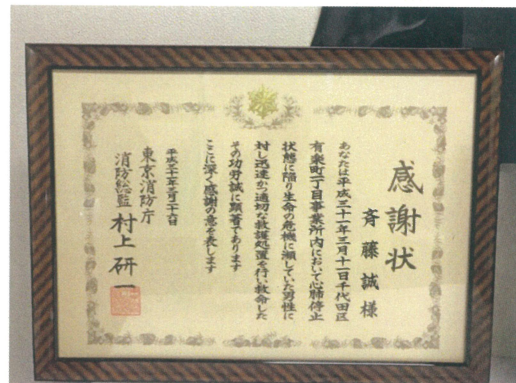 感謝状
斉藤誠様
あなたは平成三十一年三月十一日千代田区
有楽町一丁目事業所内において心肺停止
状態に陥り生命の危機に瀕していた男性に
対し迅速かつ適切な救護処置を行い救命した
その功労誠に顕著であります
ここに深く感謝の意を表します
平成三十一年三月二十六日
東京消防庁
消防総監 村上研一